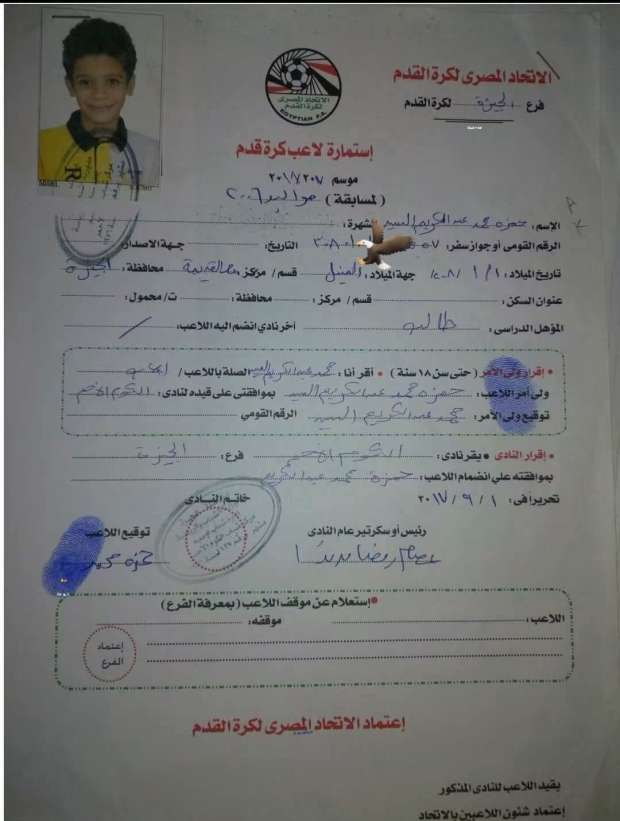 الاتحاد المصرى لكرة القدم
فرع الجيزة لكرة القدم
الاتحاد المصرى
لكرة القدم
EGYPTIAN F.A.
إستمارة لاعب كرة قدم
موسم ٢٠١٧/٢٠١٨
(لمسابقة) مواليد ٢٠٠٦
الإسم: حمزه محمد عبدالكريم السيد الشهرة:
الرقم القومى أو جواز سفر: التاريخ: جهة الاصدار:
تاريخ الميلاد: ١/١/٢٠٠٨ جهة الميلاد: المنيل قسم / مركز: مصر القديمة محافظة: الجيزة
عنوان السكن: قسم / مركز: محافظة: ت/ محمول:
المؤهل الدراسى: طالب آخر نادي انضم اليه اللاعب:
• إقرار ولى الأمر (حتى سن ١٨ سنة) • أقر أنا: محمد عبدالكريم السيد الصلة باللاعب /
ولى أمر اللاعب: حمزه محمد عبدالكريم السيد بموافقتى على قيده لنادى:
توقيع ولى الأمر: محمد عبدالكريم السيد الرقم القومي
• إقرار النادى • يقر نادى: فرع: الجيزة
بموافقته على انضمام اللاعب: حمزة محمد عبدالكريم
تحريرا فى: ١/٩/٢٠١٧
خاتم النادى
رئيس أو سكرتير عام النادى
توقيع اللاعب
حمزه محمد
• إستعلام عن موقف اللاعب (بمعرفة الفرع)
اللاعب: موقفه:
إعتماد
الفرع
إعتماد الاتحاد المصرى لكرة القدم
يقيد اللاعب للنادى المذكور
إعتماد شئون اللاعبين بالاتحاد